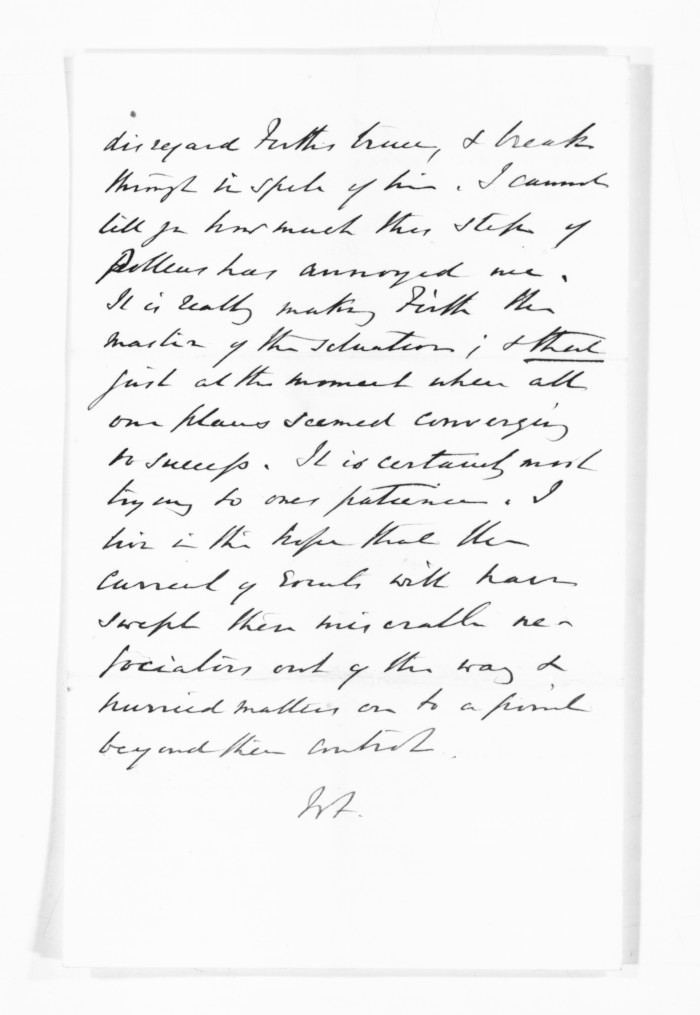 disregard Firth's truce, & break
through in spite of him. I cannot
tell you how much this step of
Pollens has annoyed me.
It is really making Firth the
master of the situation; & that
just at the moment when all
our plans seemed converging
to success. It is certainly most
trying to ones patience. I
live in the hope that the
current of Events will have
swept these miserable ne-
gociators out of the way &
hurried matters on to a point
beyond their control.